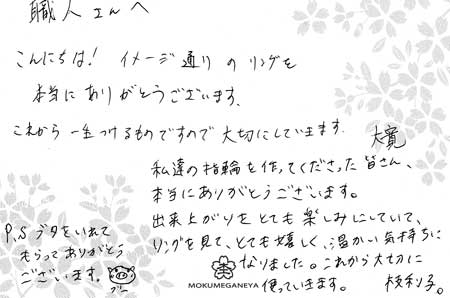 職人さんへ
こんにちは! イメージ通りのリングを
本当にありがとうございます。
これから一生つけるものですので大切にしていきます。
大寛
私達の指輪を作ってくださった皆さん、
本当にありがとうございます。
出来上がりをとても楽しみにしていて、
リングを見て、とても嬉しく、温かい気持ちに
なりました。これから大切に
使っていきます。
枝利子。
P.S ブタをいれて
もらってありがとう
ございます。
ブー
MOKUMEGANEYA